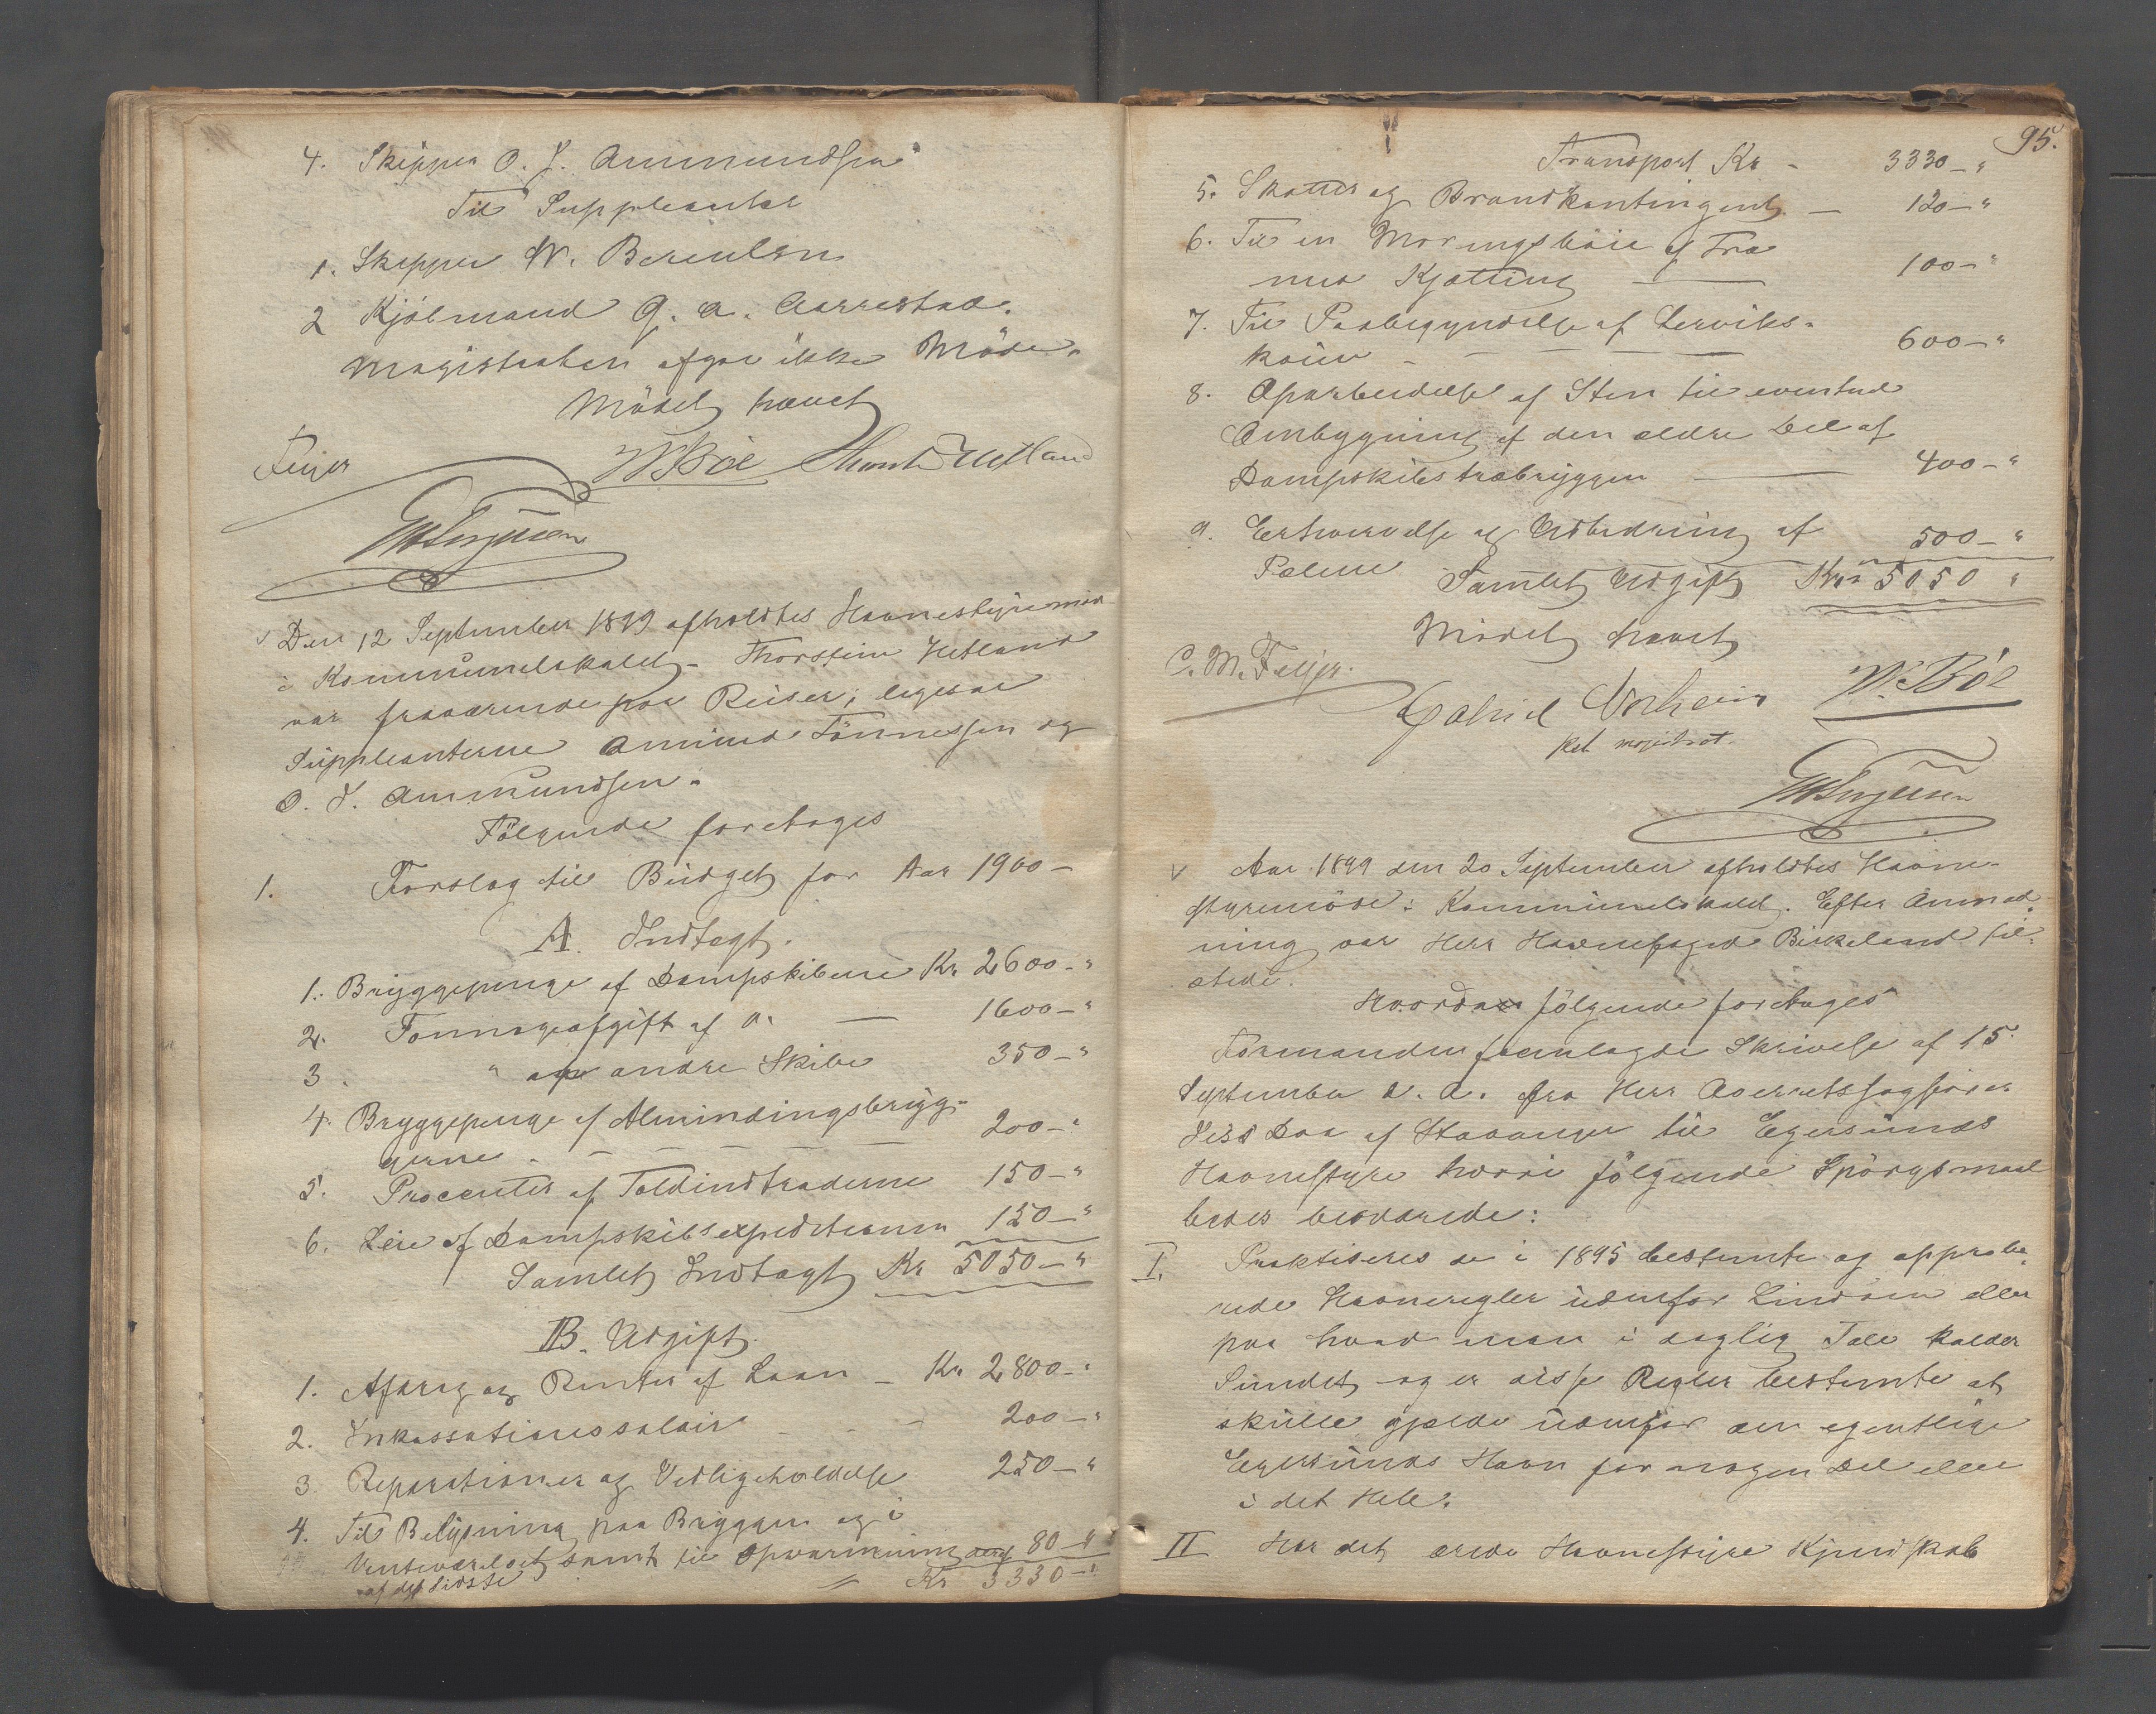 4. Skipper O. J. Ammundsen
Til Suppleanter
1. Skipper N. Berentsen
2 Kjöbmand G. A. Aarrestad.
Magistraten afgav ikke Möde.
Mödet hævet
Feyer W Böe Thorst. Hetland
Den 12 September 1899 afholdtes Havnestyremöde
i Kommunelokalet. Thorstein Hetland
var fraværende paa Reiser, ligesaa
Suppleanterne Ammund Tönnessen og
O. J. Ammundsen.
Fölgende foretoges
1. Forslag til Budget for Aar 1900 –
A. Indtægt.
1. Bryggepenge af Dampskibene Kr 2600 – "
2. Tonnageafgift af D. — 1600 – "
3. " af andre Skibe 350 – "
4. Bryggepenge af Almindingsbryg-
gerne. – – – – 200 – "
5. Procenter af Toldindtraderne 150 – "
6. Leie af Dampskibsexpeditionen 150 – "
Samlet Indtægt Kr 5050 – "
B. Udgift.
1. Afdrag og Renter af Laan – Kr 2800 – "
2. Inkassationssalair – – 200 – "
3. Reparationer og Vedligeholdelse 250 – "
4. Til Belysning paa Bryggen og i
Venteværelset samt til Opvarmning 80 – "
af det sidste Kr 3330 – "
95.
Transport Kr – 3330 – "
5. Skatter og Brandkontingent. — 120 – "
6. Til en Moringsböie af Træ
med Kjætting — 100 – "
7. Til Paabegyndelse af Lerviks-
kaien – – – — 600 – "
8. Oparbeidelse af Sten til eventuel
Ombygning af den ældre Del af
Dampskibstræbryggen — 400 – "
9. Erhvervelse og Udbedring af
Pælene 500 – "
Samlet Udgift Kr 5050 "
Mödet hævet
C. M. Feyer.
Gabriel W. Böe
kst magistrat.
Aar 1899 den 20 September afholdtes Havne-
styremöde i Kommunelokalet. Efter Anmod-
ning var Herr Havnefoged Birkeland til-
stede.
Hvorda fölgende foretoges
Formanden fremlagde Skrivelse af 15
September d. A. fra Herr Overretssagförer
Jess Daa af Stavanger til Egersunds
Havnestyre hvori fölgende Spörgsmaal
bedes besvarede:
I. Praktiseres de i 1895 bestemte og approbe-
rede Havneregler udenfor Lindöen eller
paa hvad man i daglig Tale kalder
Sundet og er disse Regler bestemte at
skulle gjælde udenfor den egentlige
Egersunds Havn for nogen Del eller
i det Hele.
II Har det ærede Havnestyre Kjendskab